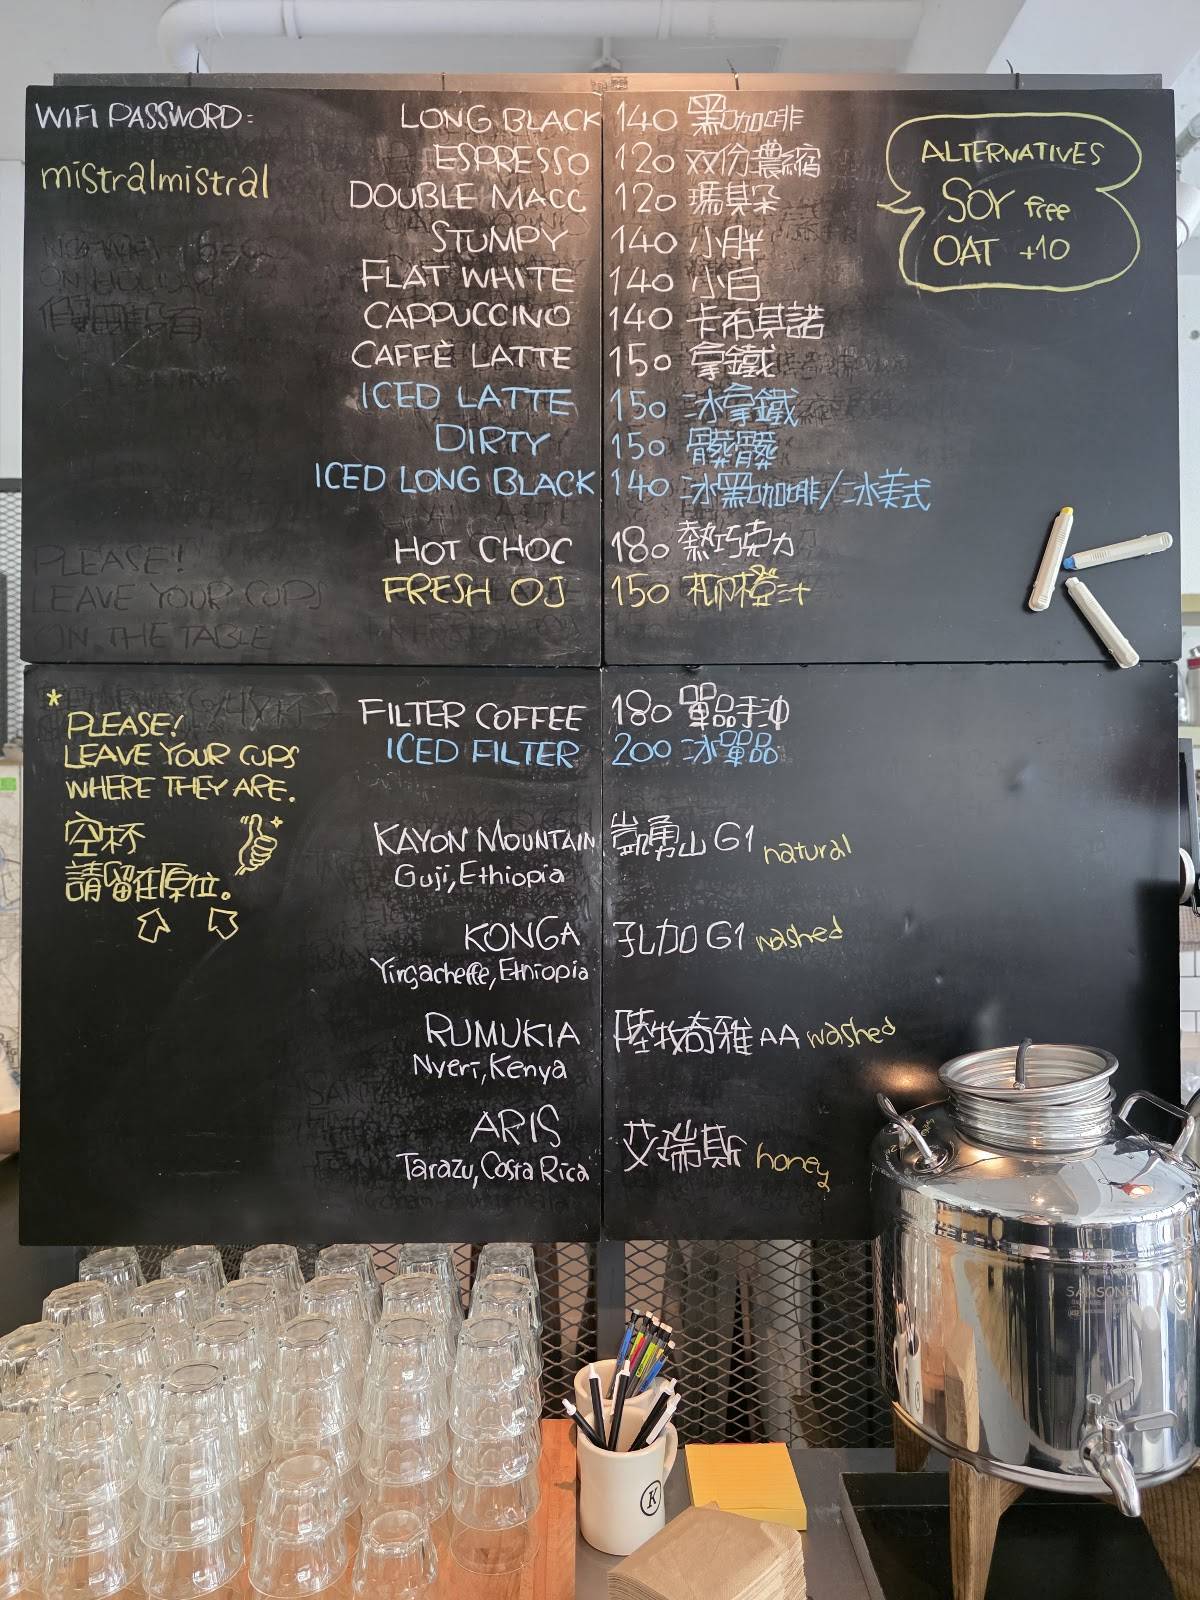 WIFI PASSWORD:
mistralmistral
LONG BLACK 140 黑咖啡
ESPRESSO 120 双份濃縮
DOUBLE MACC 120 瑪其朵
STUMPY 140 小胖
FLAT WHITE 140 小白
CAPPUCCINO 140 卡布其諾
CAFFÈ LATTE 150 拿鐵
ICED LATTE 150 冰拿鐵
DIRTY 150 髒髒
ICED LONG BLACK 140 冰黑咖啡/冰美式
HOT CHOC 180 熱巧克力
FRESH OJ 150 柳橙汁
ALTERNATIVES
SOY free
OAT +10
PLEASE!
LEAVE YOUR CUPS
ON THE TABLE
* PLEASE!
LEAVE YOUR CUPS
WHERE THEY ARE.
空杯
請留在原位。
FILTER COFFEE 180 單品手沖
ICED FILTER 200 冰單品
KAYON MOUNTAIN 凱勇山 G1 natural
Guji, Ethiopia
KONGA 孔加 G1 washed
Yirgacheffe, Ethiopia
RUMUKIA 陸牧奇雅 AA washed
Nyeri, Kenya
ARIS 艾瑞斯 honey
Tarazu, Costa Rica
SANSONE
K